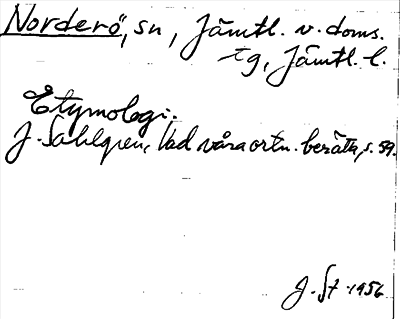 Norderö, sn, Jämtl. v. doms.
tg, Jämtl. l.
Etymologi:
J. Sahlgren, Vad våra ortn. berätta, s. 59.
J. St 1956